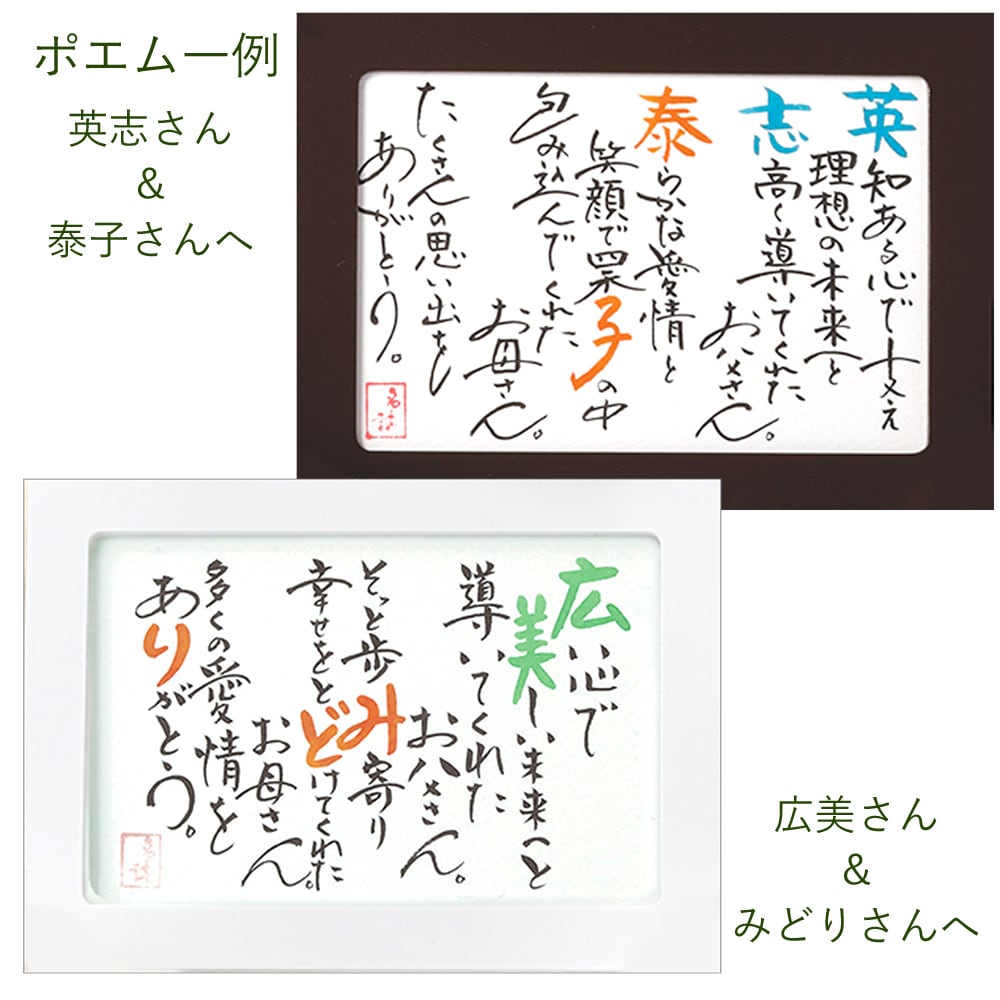 ポエム一例
英志さん
&
泰子さんへ
英知ある心で支え
理想の未来へと
志高く導いてくれた
お父さん。
泰らかな愛情と
笑顔で四果子の中
包み込んでくれた
お母さん。
たくさんの思い出をし
ありがとう。
広い心で
美しい未来へと
導いてくれた
お父さん。
そっと歩み寄り
幸せをとどけてくれた
お母さん。
多くの愛情をし
ありがとう。
広美さん
&
みどりさんへ